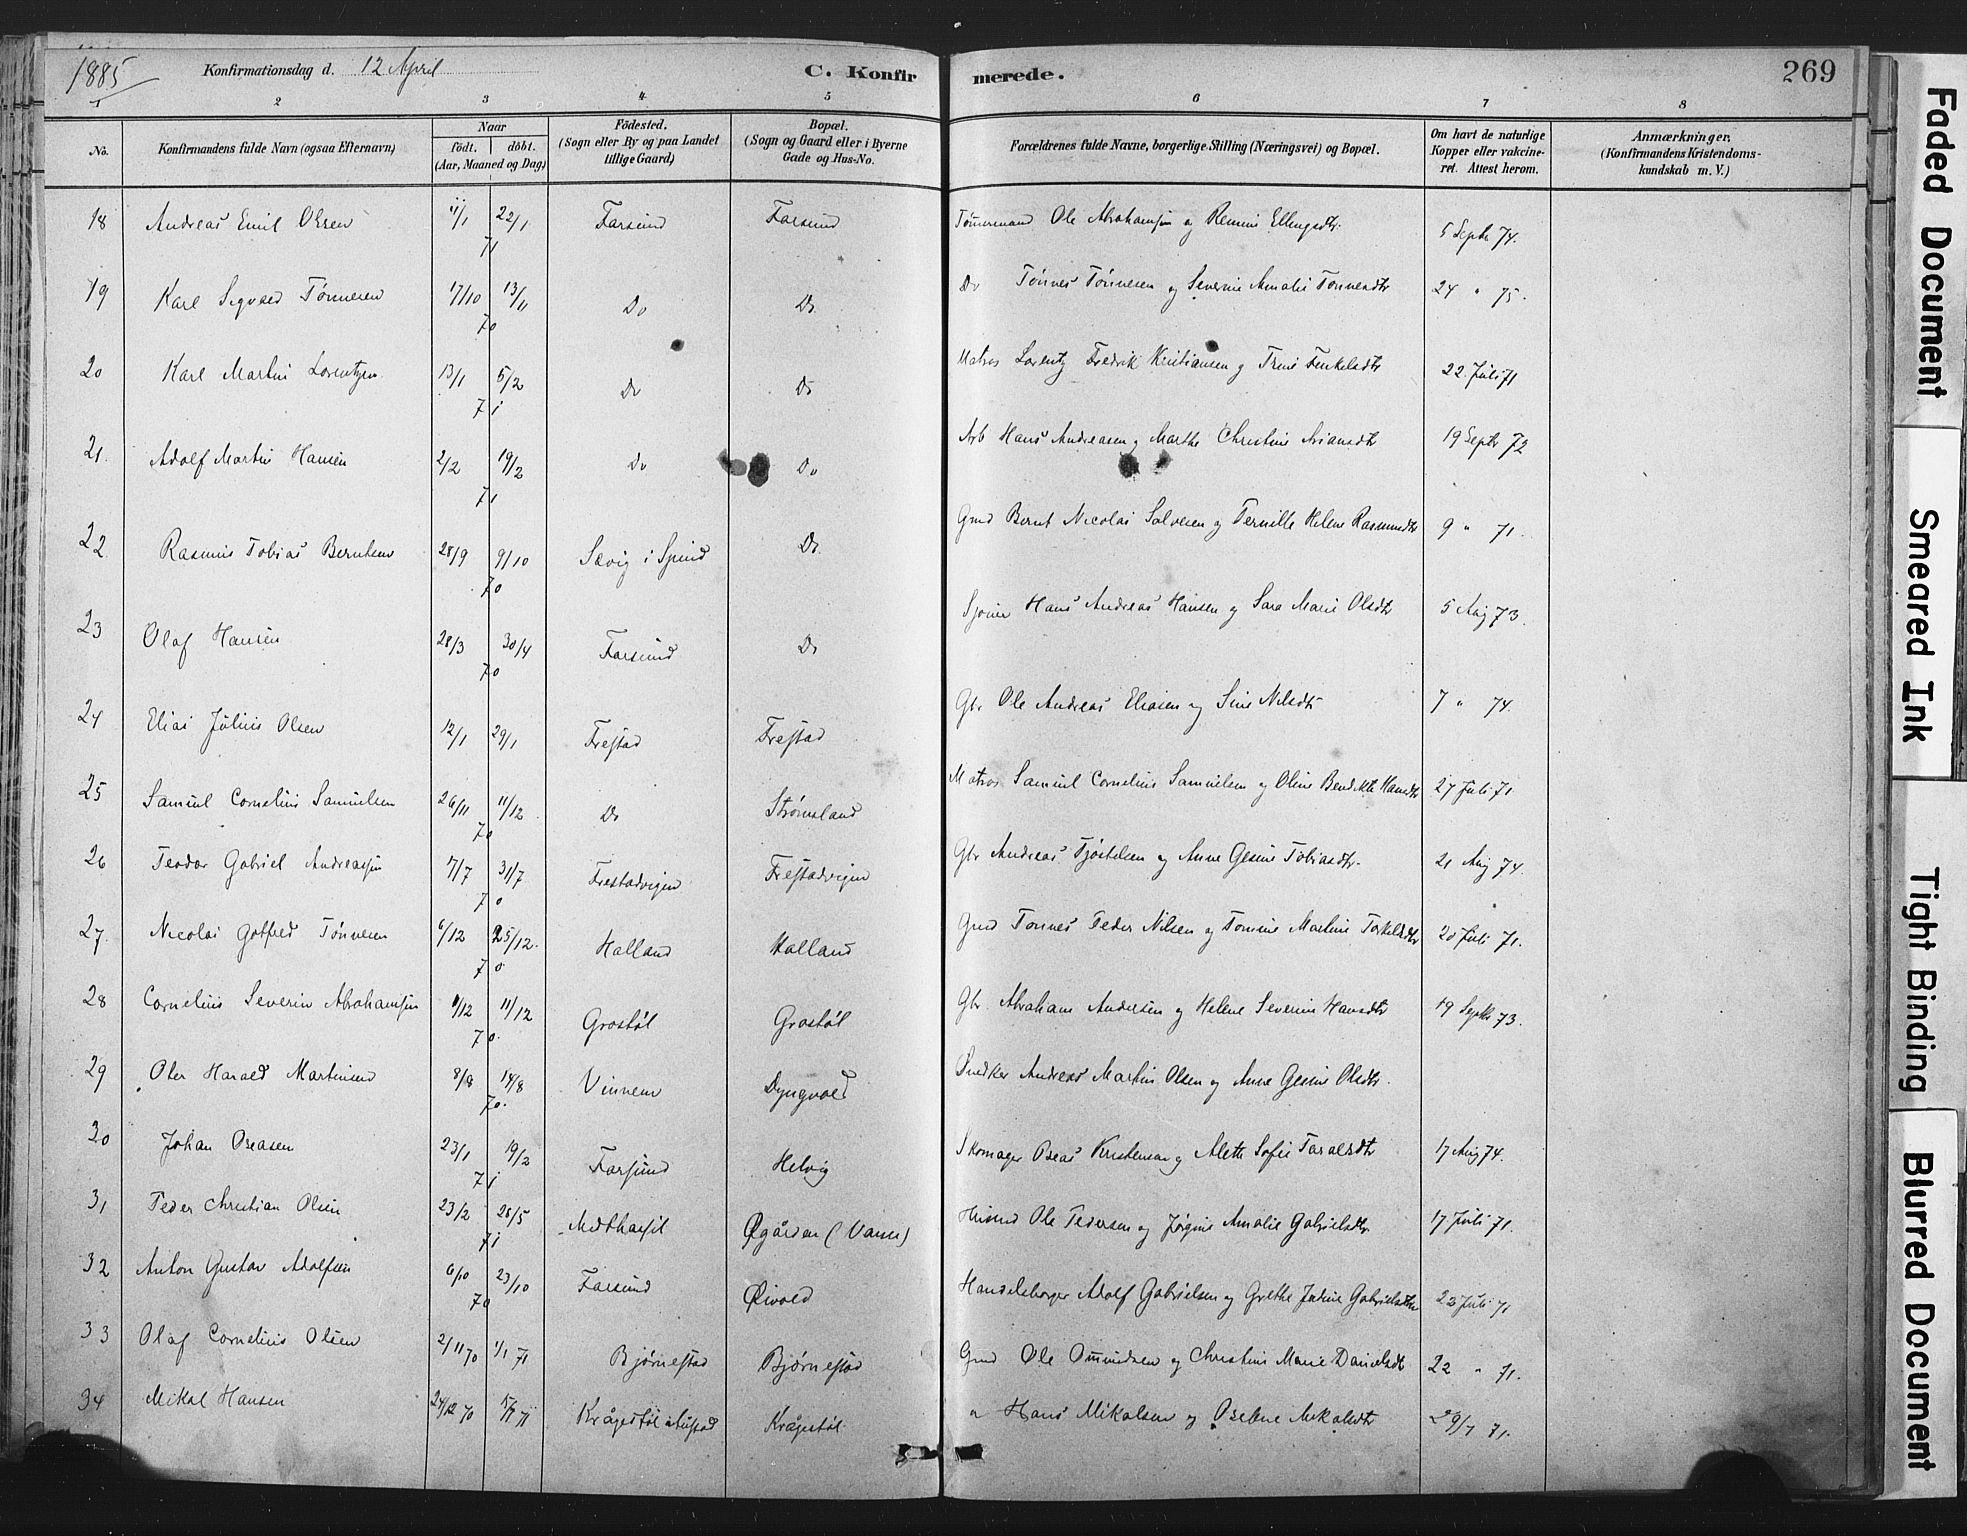 1885 Konfirmationsdag d. 12 April C. Konfir merede. 269
1 2 3 4 5 6 7 8
No. Konfirmandens fulde Navn (ogsaa Efternavn) Naar født. døbt. (Aar, Maaned og Dag) Fødested. (Sogn eller By og paa Landet tillige Gaard) Bopæl. (Sogn og Gaard eller i Byerne Gade og Hus-No. Forældrenes fulde Navne, borgerlige Stilling (Næringsvei) og Bopæl. Om havt de naturlige Kopper eller vakcineret. Attest herom. Anmærkninger, (Konfirmandens Kristendomskundskab m. V.)
18 Andreas Emil Olsen 11/1 22/1 71 Farsund Farsund Tømmermand Ole Abrahamsen og Ellingsdtr. 5 Septr 74.
19 Karl Sigvald Tønnesen 17/10 13/11 70 Do Do Do Tønnes Tønnesen og Severine Amalie Tønnesdtr 24 " 75.
20 Karl Martin Lorentzen 13/1 5/2 71 Do Do Matros Lorentz Fredrik Kristiansen og Trine 22 Juli 71
21. Adolf Martin Hansen 2/2 19/2 71 Do Do Arb Hans Andreasen og Marthe Christine 19 Septr 72
22 Rasmus Tobias Berntsen 28/9 9/10 70 Sævig i Spind Do Gmd Bernt Nicolai Salvesen og Pernille Helene Rasmusdtr 9 " 71.
23 Olaf Hansen 28/3 30/4 70 Farsund Do Hans Andreas Hansen og Sara Marie Olsdtr 5 Aug 73.
24 Elias Julius Olsen 12/1 29/1 Frestad Frestad Gbr Ole Andreas Eliasen og Sine Nilsdtr 7 " 74.
25 Samuel Cornelius Samuelsen 26/11 11/12 70 Do Strømsland Matros Samuel Cornelius Samuelsen og Oline Bendikte Hansdtr 27 Juli 71
26 Teodor Gabriel Andreassen 7/7 31/7 70 Frestadvigen Frestadvigen Gbr Andreas Tjøstelsen og Anne Gesine Tobiasdtr. 21 Aug 74.
27. Nicolai Gotfred Tønnesen 6/12 25/12 70 Halland Halland Gmd Tønnes Peder Nilsen og Tomine Martine Torkelsdtr 20 Juli 71.
28 Cornelius Severin Abrahamsen /12 11/12 70. Grostøl Grostøl Gbr. Abraham Andersen og Helene Severine Hansdtr 19 Septbr 73.
29 Harald Martinsen 8/8 14/8 70. Vinnem Dyngvold Snedker Andreas Martin Olsen og Anne Gesine Olsdtr.
30 Johan Oseasen 23/1 19/2 71 Farsund Helvig Skomager Oseas Kristensen og Aleth Sofie Taraldsdtr 17 Aug 74.
31 Peder Christian Olsen 23/2 28/5 71 Øgården (Vanse) Husmd Ole Pedersen og Jørgine Amalie Gabrielsdtr. 17 Juli 71.
32 Anton Gustav Adolfsen 6/10 23/10 70 Farsund Øivold Handelsborger Adolf Gabrielsen og Grethe Gabrielsdtr 23 Juli 71
33 Olaf Cornelius Olsen 2/11 70 1/1 71 Bjørnestad Bjørnestad Gmd Ole Omundsen og Christine Marie Danielsdt 22 " 71.
34 Mikal Hansen 24/12 70 71 Krågestøl Krågestøl " Hans Mikalsen og Oseline 29/7 71.
Faded Document
Smeared Ink
Tight Binding
Blurred Document